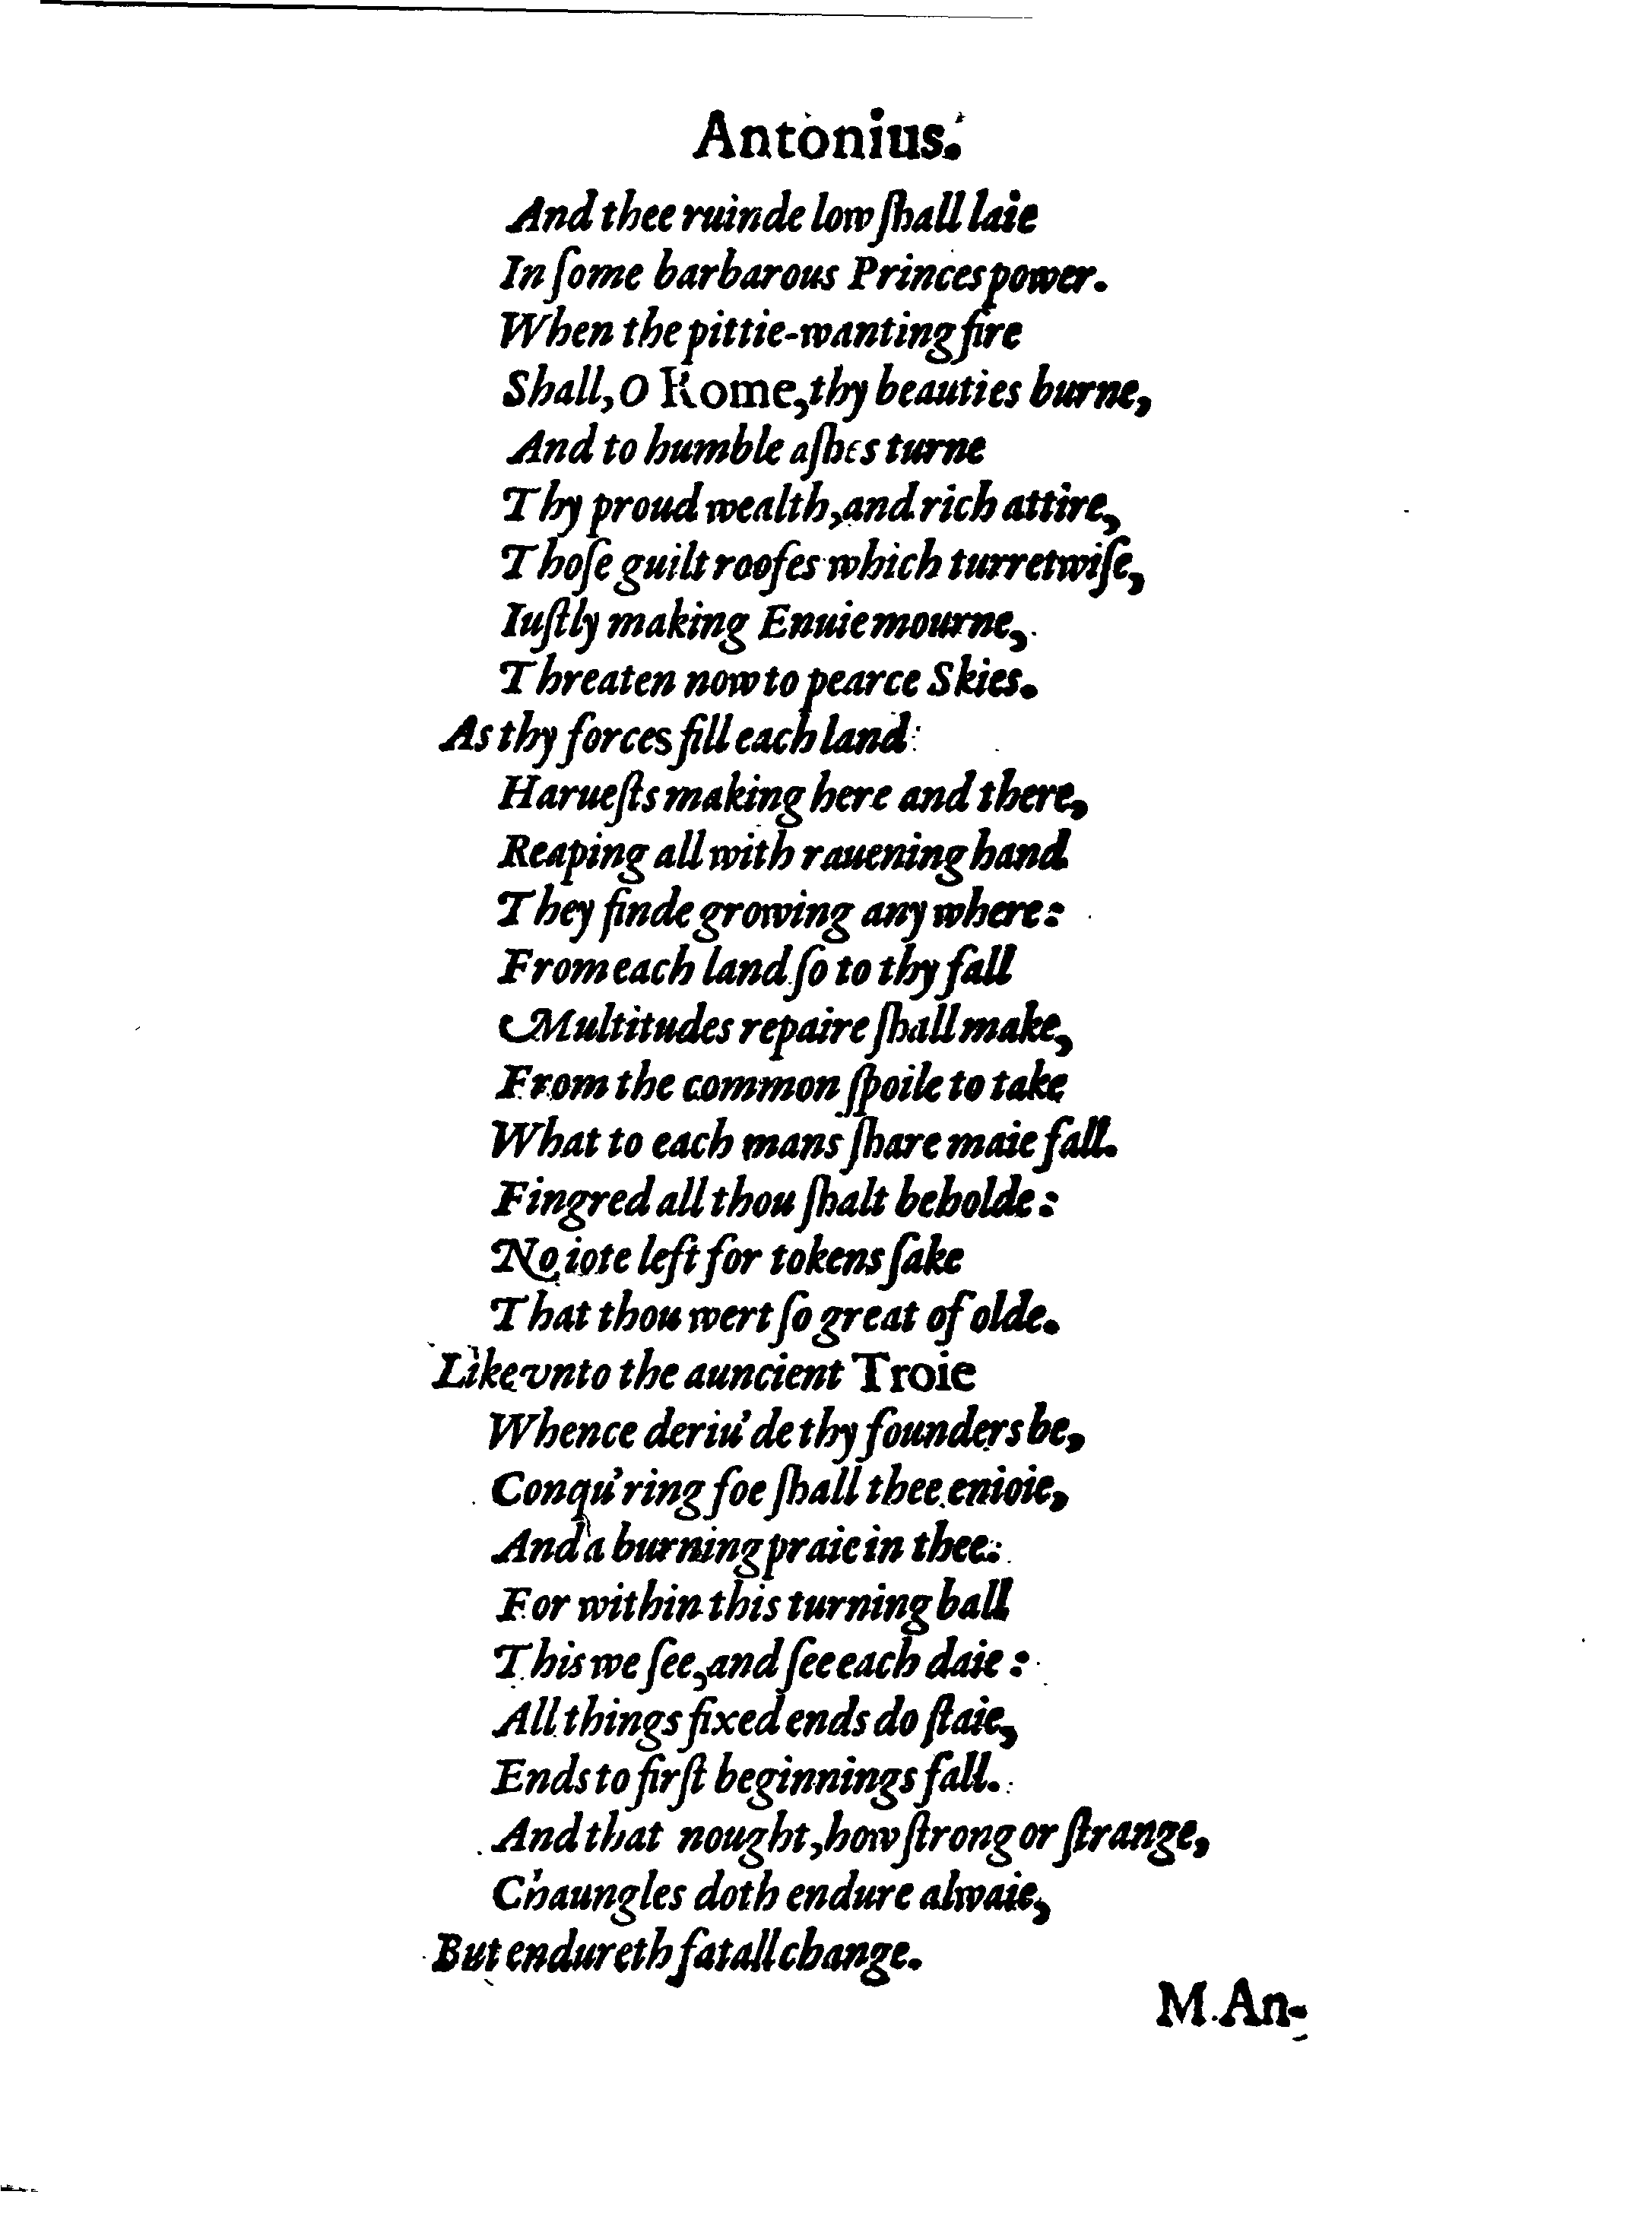 Antonius.
And thee ruinde low ſhall laie
In ſome barbarous Princes power.
When the pittie-wanting fire
Shall, O Rome, thy beauties burne,
And to humble aſhes turne
Thy proud wealth, and rich attire,
Thoſe guilt roofes which turretwiſe,
Iuſtly making Enuie mourne,
Threaten now to pearce Skies.
As thy forces fill each land:
Harueſts making here and there,
Reaping all with rauening hand
They finde growing any where:
From each land ſo to thy fall
Multitudes repaire ſhall make,
From the common ſpoile to take
What to each mans ſhare maie fall.
Fingred all thou ſhalt beholde:
No iote left for tokens ſake
That thou wert ſo great of olde.
Like vnto the auncient Troie
Whence deriu'de thy founders be,
Conqu'ring foe ſhall thee enioie,
And a burning praie in thee:
For within this turning ball
This we ſee, and ſee each daie:
All things fixed ends do ſtaie,
Ends to firſt beginnings fall.
And that nought, how ſtrong or ſtrange,
Chaungles doth endure alwaie,
But endureth fatall change.
M. An-